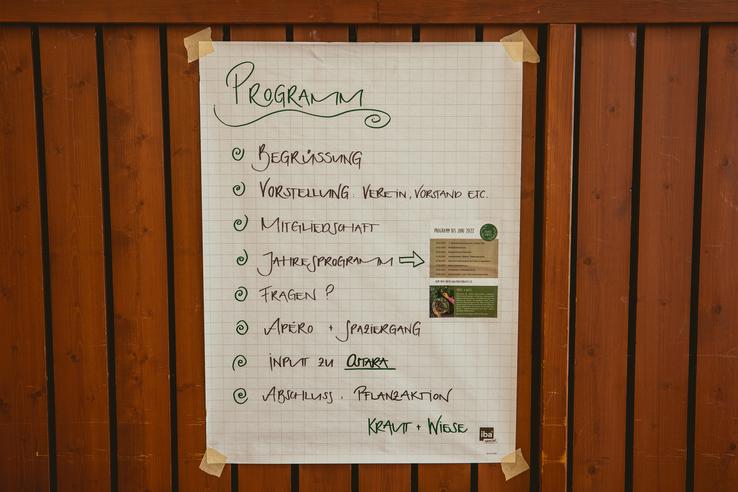 Programm
Begrüssung
Vorstellung: Verein, Vorstand etc.
Mitgliedschaft
PROGRAMM BIS JUNI 2022
Jahresprogramm
Fragen?
Apéro + Spaziergang
Input zu Ostara
Abschluss, Pflanzaktion
Kraut + Wiese
iba